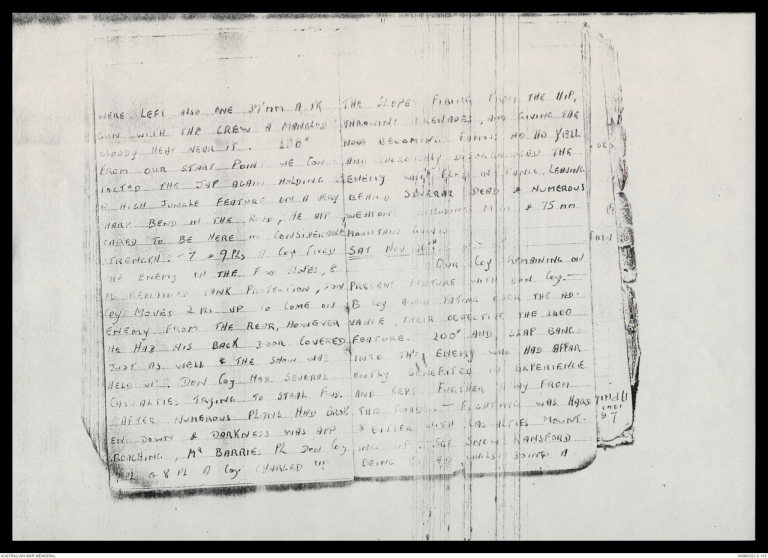 WERE LEFT ALSO ONE 37MM A TK
GUN WITH THE CREW A MANGLED
BLOODY HEAP NEAR IT. 200ˣ
FROM OUR START POINT WE CON
TACTED THE JAP AGAIN HOLDING
A HIGH JUNGLE FEATURE ON A VERY
HARP BEND IN THE ROAD, HE APP
EARED TO BE HERE IN CONSIDERABLE
STRENGTH. 7 & 9 PLS A COY FIXED
THE ENEMY IN THE FWD SLOPES, 8
PL REMAINED TANK PROTECTION, DON
COY MOVED 2 PLS UP TO COME ON
ENEMY FROM THE REAR, HOWEVER
HE HAD HIS BACK DOOR COVERED
JUST AS WELL & THE SHOW WAS
HELD UP. DON COY HAD SEVERAL
CASUALTIES TRYING TO STEAL FWD.
AFTER NUMEROUS PLANS HAD BROK
EN DOWN & DARKNESS WAS APP
ROACHING, Mʳ BARRIE PL DON COY
& 8 PL A COY CHARGED UP
THE SLOPE FIRING FROM THE HIP,
THROWING GRENADES, AND GIVING THE
NOW BECOMING FAMOUS HO HO YELL
AND THE
ENEMY WHO FLED IN PANIC LEAVING
BEHIND SEVERAL DEAD & NUMEROUS
WEAPONS INCLUDING & 75 MM
MOUNTAIN GUN
SAT NOV
OUR COY REMAINING ON
PRESENT FEATURE WITH DON COY.—
B COY AGAIN TAKING OVER THE AD-
VANCE, THEIR OBJECTIVE THE 2400
FEATURE. 200ˣ AND SLAP BANG
INTO THE ENEMY WHO HAD APPAR
ENTLY BENEFITED IN EXPERIENCE
AND KEPT FURTHER AWAY FROM
THE ROAD. — FIGHTING WAS HARD
& BITTER WITH CASUALTIES MOUNT-
ING UP. SGT SNOW RANSFORD
BEING KILLED WHILST DOING A
AUSTRALIAN WAR MEMORIAL